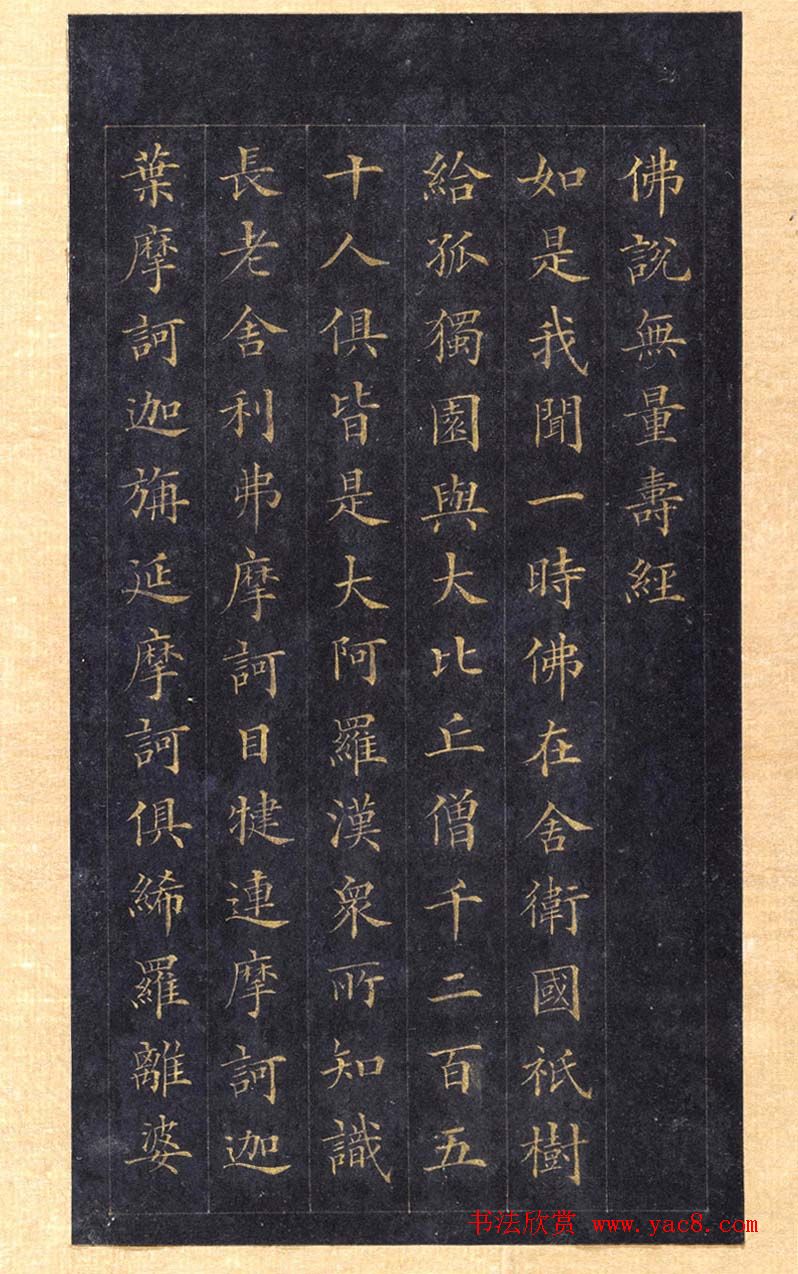 佛說無量壽經
如是我聞一時佛在舍衛國祇樹
給孤獨園與大比丘僧千二百五
十人俱皆是大阿羅漢衆所知識
長老舍利弗摩訶目犍連摩訶迦
葉摩訶迦旃延摩訶俱絺羅離婆
书法欣赏 www.yac8.com